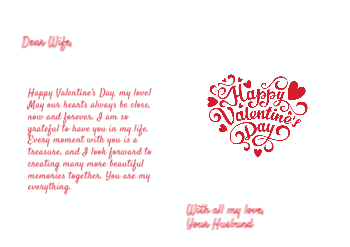 Dear Wife,
Happy Valentine's Day, my love!
May our hearts always be close,
now and forever. I am so
grateful to have you in my life.
Every moment with you is a
treasure, and I look forward to
creating many more beautiful
memories together. You are my
everything.
Happy
Valentine's
Day
With all my love,
Your Husband